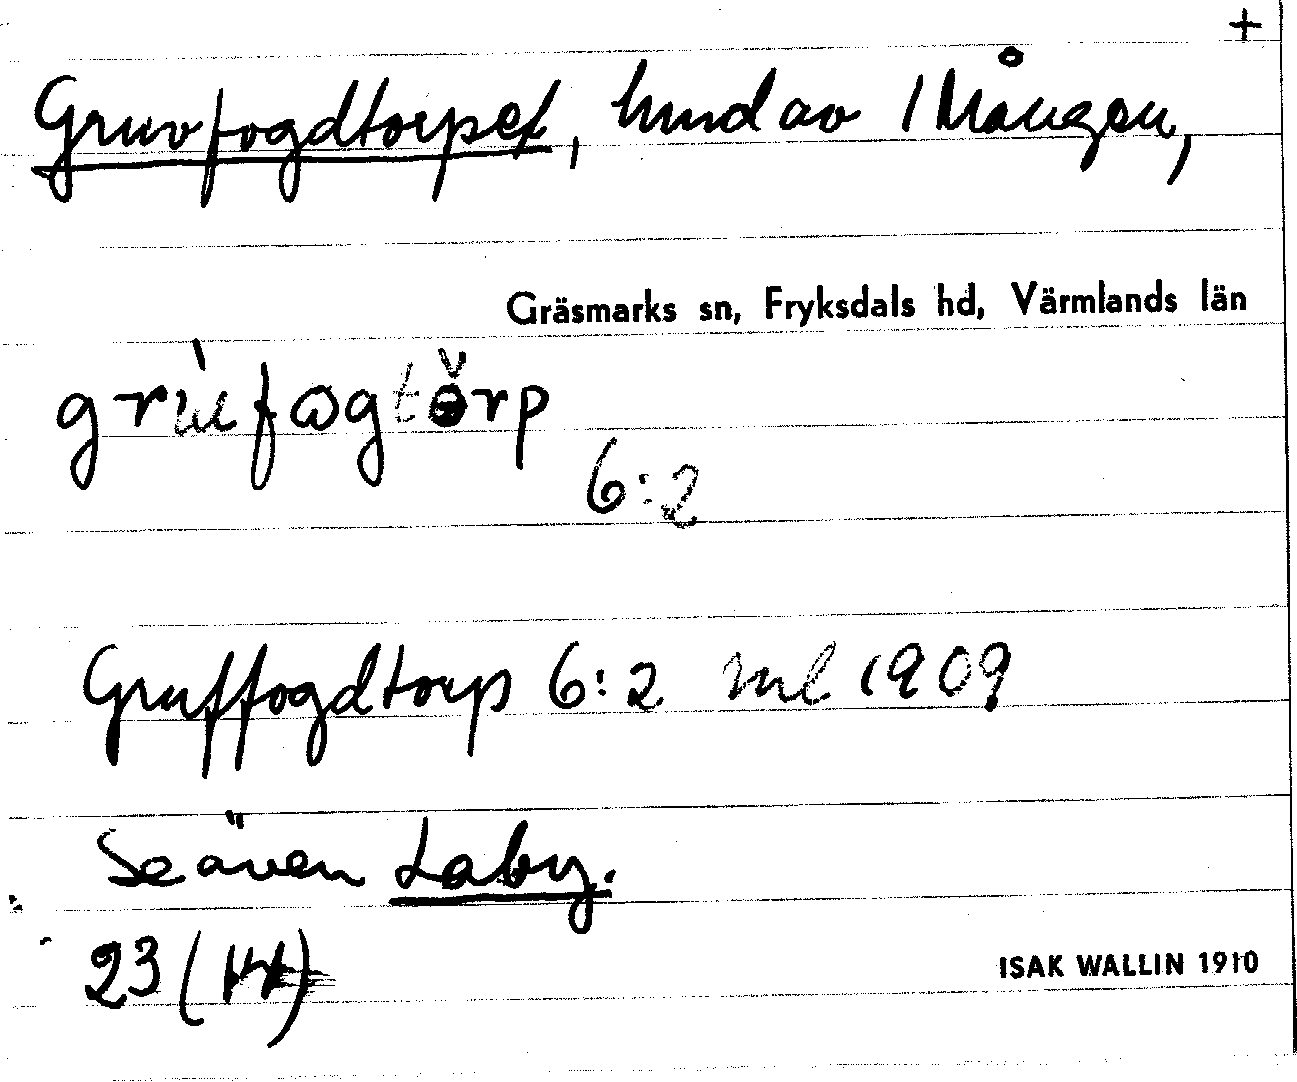 +
Gruvfogdtorpet, hmd av 1 Mången,
Gräsmarks sn, Fryksdals hd, Värmlands län
grùfωgtɵ̌rp
6:2
Gruffogdtorp 6:2 ml 1909
Se även Laby.
23 (
ISAK WALLIN 1910